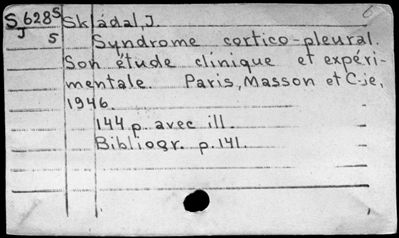 S 628S Skládal, J.
J 5 Syndrome cortico-pleural.
Son étude clinique et expéri-
mentale. Paris, Masson et C-ie,
1946.
144 p. avec ill.
Bibliogr. p. 141.